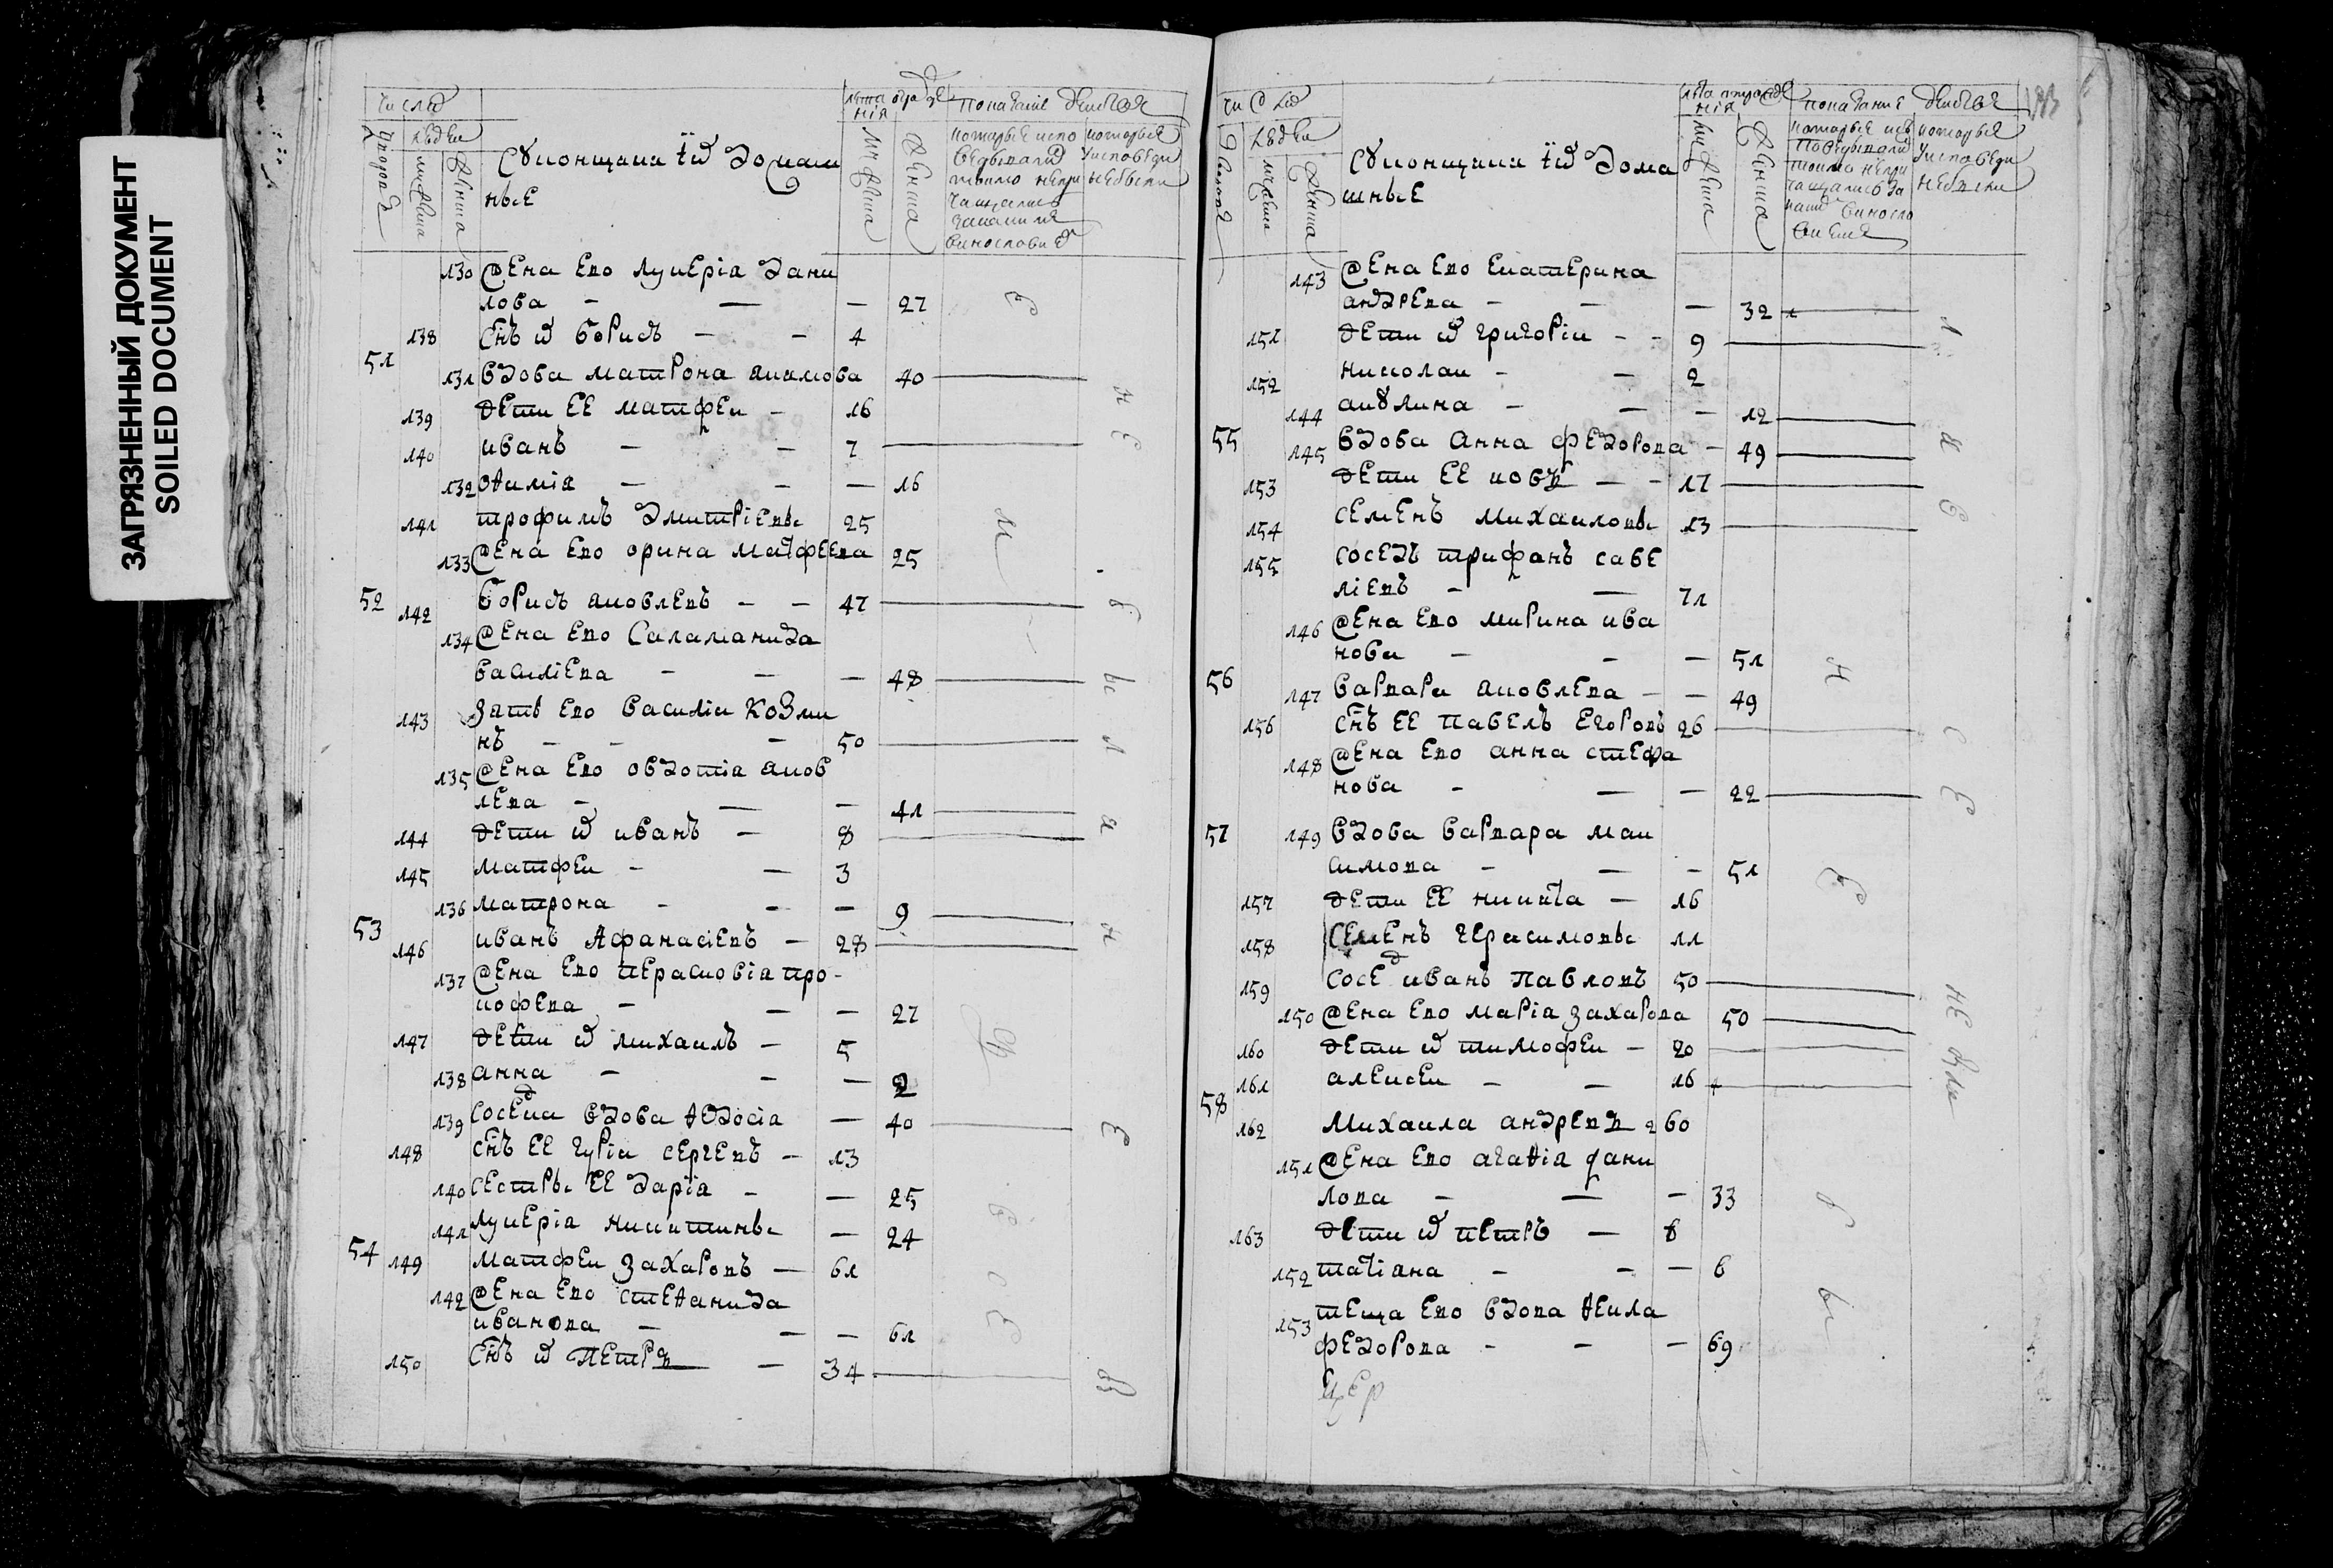 ЗАГРЯЗНЕННЫЙ ДОКУМЕНТ
SOILED DOCUMENT
числа
людеи
дворовъ
мужеска
женска
и домаш
ные
мужеска
женска
показание действа
которые испо
ведывались
токмо не при
чащались
которые
у исповеди
не были
130 жена ево лукеріа дани
лова - — — 27
138 снъ их борисъ - - 4
51
131 вдова матрона акимова 40
139 дети ее матфеи - 16
140 иванъ - - 7
132 — - — 16
141 трофимъ дмитріевы 25
133 жена ево орина матфеева 25
52 142 борисъ яковлевъ - - 47
134 жена ево саламанида
василіева - - — 48
143 зять ево василіи козми
нъ - - - 50
135 жена ево овдотіа яков
лева - — — 41
144 дети их иванъ - 8
145 матфеи - — 3
136 матрона - - — 9
53 146 иванъ афанасіевъ - 28
137 жена ево перасковіа про-
кофева - — — 27
147 дети их михаилъ - 5
138 анна - - — 2
139 соседка вдова ѳедосіа — 40
148 снъ ее гуріи сергевъ - 13
140 сестры ее даріа - — 25
141 лукеріа никитины — 24
54 149 матфеи захаровъ — 61
142 жена ево стеѳанида
иванова - - — 61
150 снъ их петръ — 34
числа
людеи
мужеска
женска
и дома
шные
женска
показание действа
которые исп
поведывались
токмо не при
чащались за
которые
у исповеди
не были
143 жена ево екатерина
андрева - - — 32
151 дети их григоріи - - 9
152 николаи - — 2
144 акулина - — — 12
55 145 вдова анна федорова - 49
153 дети ее иовъ — - 17
154 семенъ михаиловы 13
155 соседъ трифанъ саве
ліевъ - — 71
146 жена ево марина ива
нова - - — 51
56
147 варвара яковлева - — 49
156 снъ ее павелъ егоровъ 26
148 жена ево анна стефа
нова - — — 22
57 149 вдова варвара мак
симова - — - 51
157 дети ее никита — 16
158 семенъ герасимовы 11
159 сосед иванъ павловъ 50
150 жена ево маріа захарова 50
160 дети их тимофеи - 20
161 алексеи - — 16
58
162 михаила андревъ 60
151 жена ево агаѳіа дани
лова - — — 33
163 дети их петръ — 8
152 татіана - - — 6
153 теща ево вдова ѳекла
федорова - - — 69